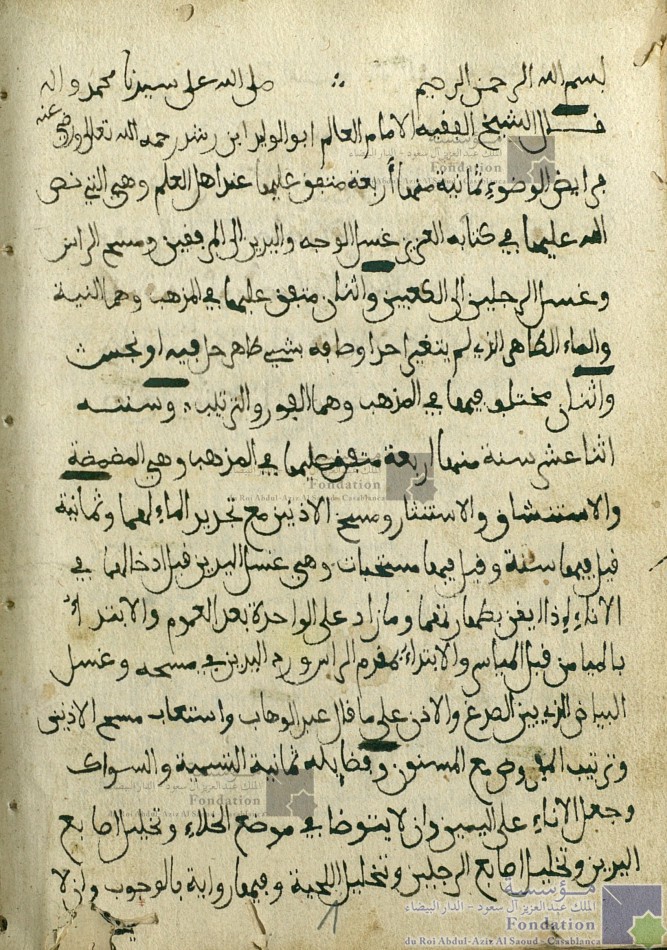 بسم الله الرحمن الرحيم صلى الله على سيدنا محمد واله
قال الشيخ الفقيه الامام العالم ابو الوليد ابن رشد رحمه الله تعالى ورضي عنه
فرايض الوضوء ثمانية منها أربعة متفق عليها عند اهل العلم وهي التي نص
الله عليها في كتابه العزيز غسل الوجه واليدين الى المرفقين ومسح الراس
وغسل الرجلين الى الكعبين واثنان متفق عليها في المذهب وهما النية
والماء الطاهر الذي لم يتغير احد اوصافه بشيء طاهر حل فيه او نجس
واثنان مختلف فيهما في المذهب وهما الفور والترتيب وسننه
اثنا عشر سنة منها اربعة متفق عليها في المذهب وهي المضمضة
والاستنشاق والاستنثار ومسح الاذنين مع تجديد الماء لهما وثمانية
قيل فيها سنة وقيل فيها مستحبات وهي غسل اليدين قبل ادخالهما في
الاناء اذا ايقن بطهارتهما وما زاد على الواحدة بعد العموم والابتداء
بالميامن قبل المياسر والابتداء بمقدم الراس ورد اليدين في مسحه وغسل
البياض الذي بين الصدغ والاذن على ما قال عبد الوهاب واستيعاب مسح الاذنين
وترتيب المفروض مع المسنون وفضايله ثمانية التسمية والسواك
وجعل الاناء على اليمين وان لا يتوضا في موضع الخلاء وتخليل اصابع
اليدين وتخليل اصابع الرجلين وتخليل اللحية وفيها رواية بالوجوب وان لا
مؤسسة
الملك عبد العزيز آل سعود - الدار البيضاء
Fondation
du Roi Abdul-Aziz Al Saoud - Casablanca